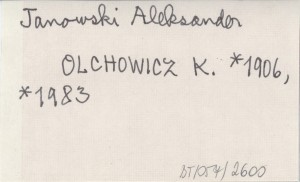 Janowski Aleksander
OLCHOWICZ K. *1906,
*1983
BT/054/2600